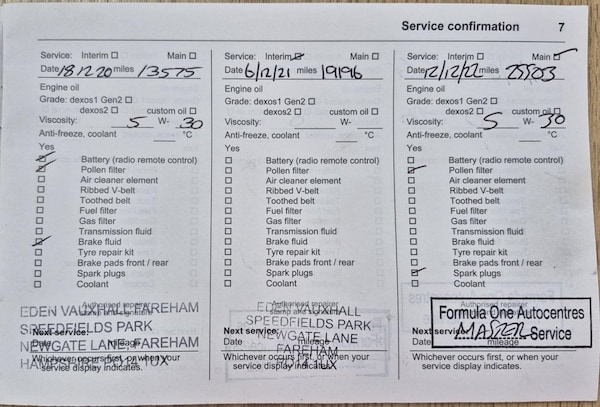 Service confirmation 7
Service: Interim Main
Date 18.12.20 miles 13575
Engine oil
Grade: dexos1 Gen2
dexos2 custom oil
Viscosity: 5 W- 30
Anti-freeze, coolant °C
Yes
Battery (radio remote control)
Pollen filter
Air cleaner element
Ribbed V-belt
Toothed belt
Fuel filter
Gas filter
Transmission fluid
Brake fluid
Tyre repair kit
Brake pads front / rear
Spark plugs
Coolant
Authorised repairer
stamp and signature
EDEN VAUXHALL FAREHAM
SPEEDFIELDS PARK
Next service:
NEWGATE LANE, FAREHAM
Date mileage
Whichever occurs first, or when your
service display indicates.
Service: Interim Main
Date 6/12/21 miles 19196
Engine oil
Grade: dexos1 Gen2
dexos2 custom oil
Viscosity: W-
Anti-freeze, coolant °C
Yes
Battery (radio remote control)
Pollen filter
Air cleaner element
Ribbed V-belt
Toothed belt
Fuel filter
Gas filter
Transmission fluid
Brake fluid
Tyre repair kit
Brake pads front / rear
Spark plugs
Coolant
Authorised repairer
stamp and signature
EDEN VAUXHALL
SPEEDFIELDS PARK
Next service:
NEWGATE LANE
Date mileage
FAREHAM
Whichever occurs first, or when your
service display indicates.
Service: Interim Main
Date 12/12/22 miles 25503
Engine oil
Grade: dexos1 Gen2
dexos2 custom oil
Viscosity: 5 W- 30
Anti-freeze, coolant °C
Yes
Battery (radio remote control)
Pollen filter
Air cleaner element
Ribbed V-belt
Toothed belt
Fuel filter
Gas filter
Transmission fluid
Brake fluid
Tyre repair kit
Brake pads front / rear
Spark plugs
Coolant
Authorised repairer
Formula One Autocentres
MASTER Service
Next service:
Date mileage
Whichever occurs first, or when your
service display indicates.